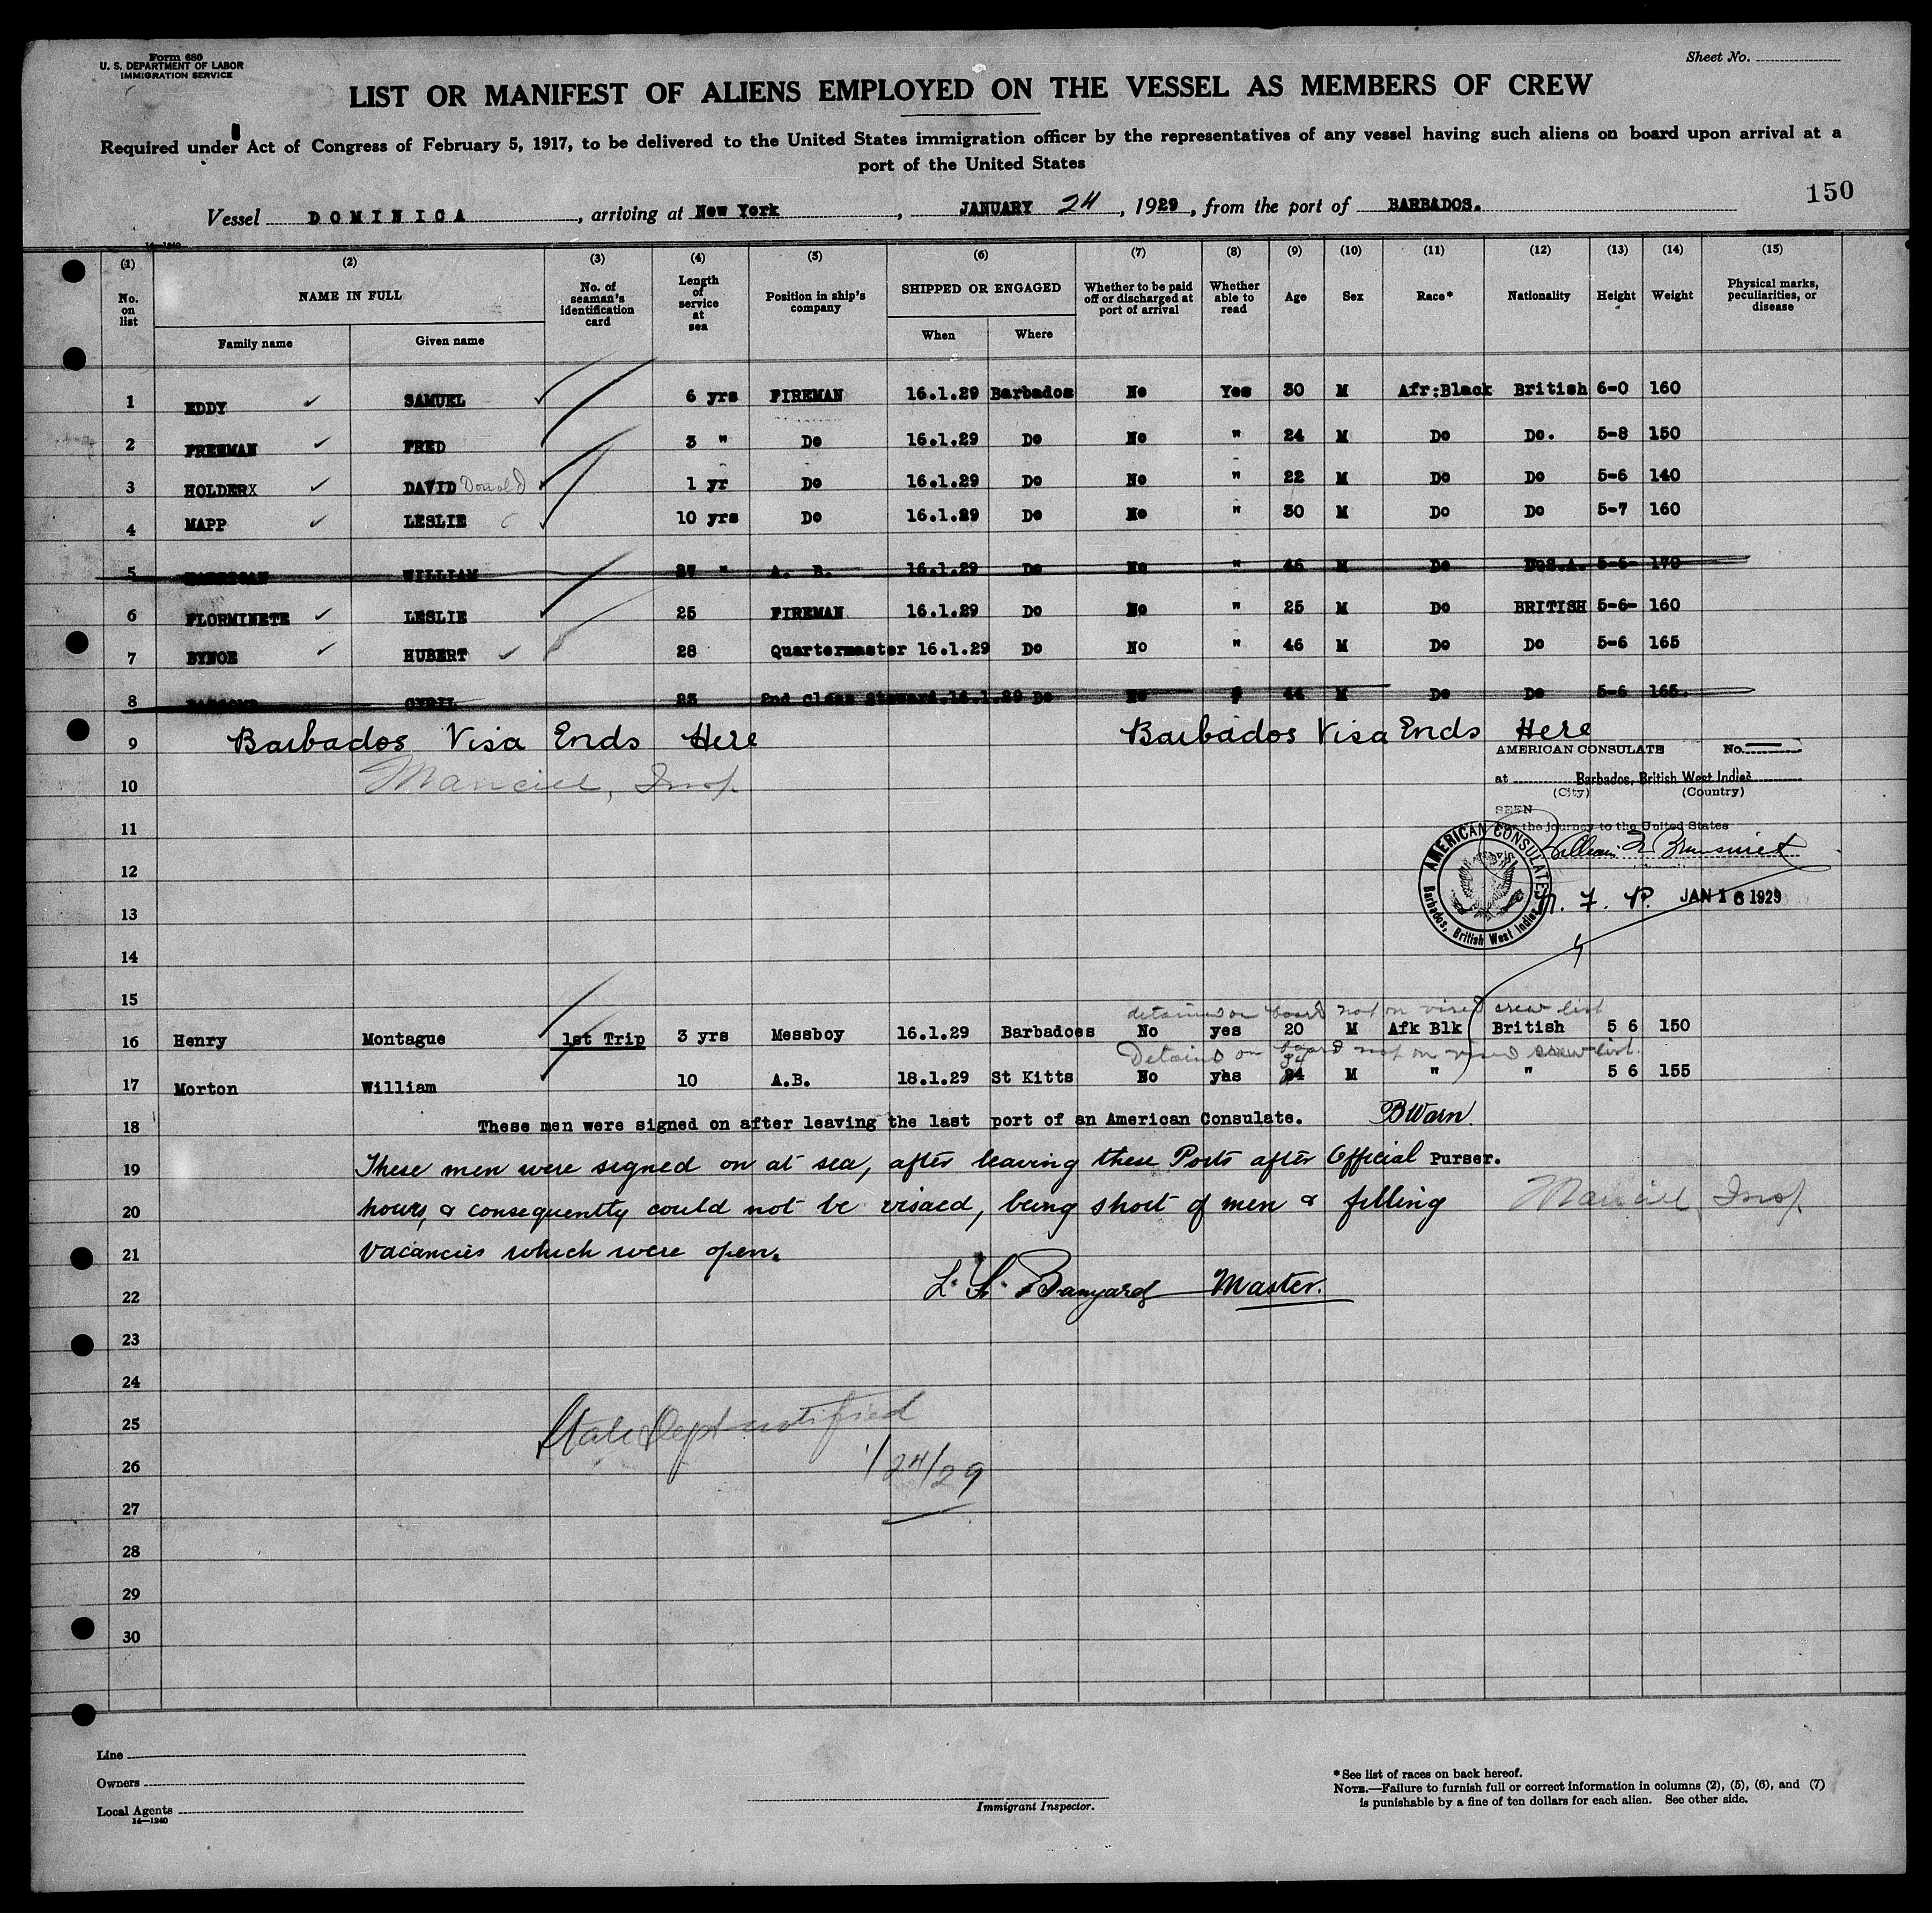 Form 680
U. S. DEPARTMENT OF LABOR
IMMIGRATION SERVICE
Sheet No.
LIST OR MANIFEST OF ALIENS EMPLOYED ON THE VESSEL AS MEMBERS OF CREW
Required under Act of Congress of February 5, 1917, to be delivered to the United States immigration officer by the representatives of any vessel having such aliens on board upon arrival at a
port of the United States
150
Vessel DOMINICA, arriving at New York, JANUARY 24, 1929, from the port of BARBADOS.
14—1240
(1) (2) (3) (4) (5) (6) (7) (8) (9) (10) (11) (12) (13) (14) (15)
No. on list NAME IN FULL No. of seaman's identification card Length of service at sea Position in ship's company SHIPPED OR ENGAGED Whether to be paid off or discharged at port of arrival Whether able to read Age Sex Race* Nationality Height Weight Physical marks, peculiarities, or disease
Family name Given name When Where
1 EDDY SAMUEL 6 yrs FIREMAN 16.1.29 Barbados No Yes 30 M Afr:Black British 6-0 160
2 FREEMAN FRED 3 " Do 16.1.29 Do No " 24 M Do Do. 5-8 150
3 HOLDERX DAVID Donald 1 yr Do 16.1.29 Do No " 22 M Do Do 5-6 140
4 MAPP LESLIE 10 yrs Do 16.1.29 Do No " 30 M Do Do 5-7 160
5 WILLIAM 27 " A. B. 16.1.29 Do No " 46 M Do 5-6- 170
6 FLORMINETE LESLIE 25 FIREMAN 16.1.29 Do No " 25 M Do BRITISH 5-6- 160
7 BYNOE HUBERT 28 Quartermaster 16.1.29 Do No " 46 M Do Do 5-6 165
8 CYRIL 23 2nd Class Steward. 16.1.29 Do No 44 M Do Do 5-6 165.
9 Barbados Visa Ends Here Barbados Visa Ends Here
AMERICAN CONSULATE No.
10 Insp.
at Barbados, British West Indies
(City) (Country)
SEEN
11 For the journey to the United States
12
AMERICAN CONSULATE
Barbados, British West Indies
13 JAN 16 1929
14
15
detained on board not on visaed crew list
16 Henry Montague 1st Trip 3 yrs Messboy 16.1.29 Barbadoes No yes 20 M Afk Blk British 5 6 150
Detained on board not on visaed crew list.
34
17 Morton William 10 A.B. 18.1.29 St Kitts No yhs M " " 5 6 155
18 These men were signed on after leaving the last port of an American Consulate. BWarn.
19 These men were signed on at sea, after leaving these Ports after Official Purser.
20 hours, & consequently could not be visaed, being short of men & filling Insp.
21 vacancies which were open.
22 Banyard Master.
23
24
25 State Dept notified
26 1/24/29
27
28
29
30
Line
Owners
Local Agents
14—1240
Immigrant Inspector.
*See list of races on back hereof.
NOTE.—Failure to furnish full or correct information in columns (2), (5), (6), and (7)
is punishable by a fine of ten dollars for each alien. See other side.